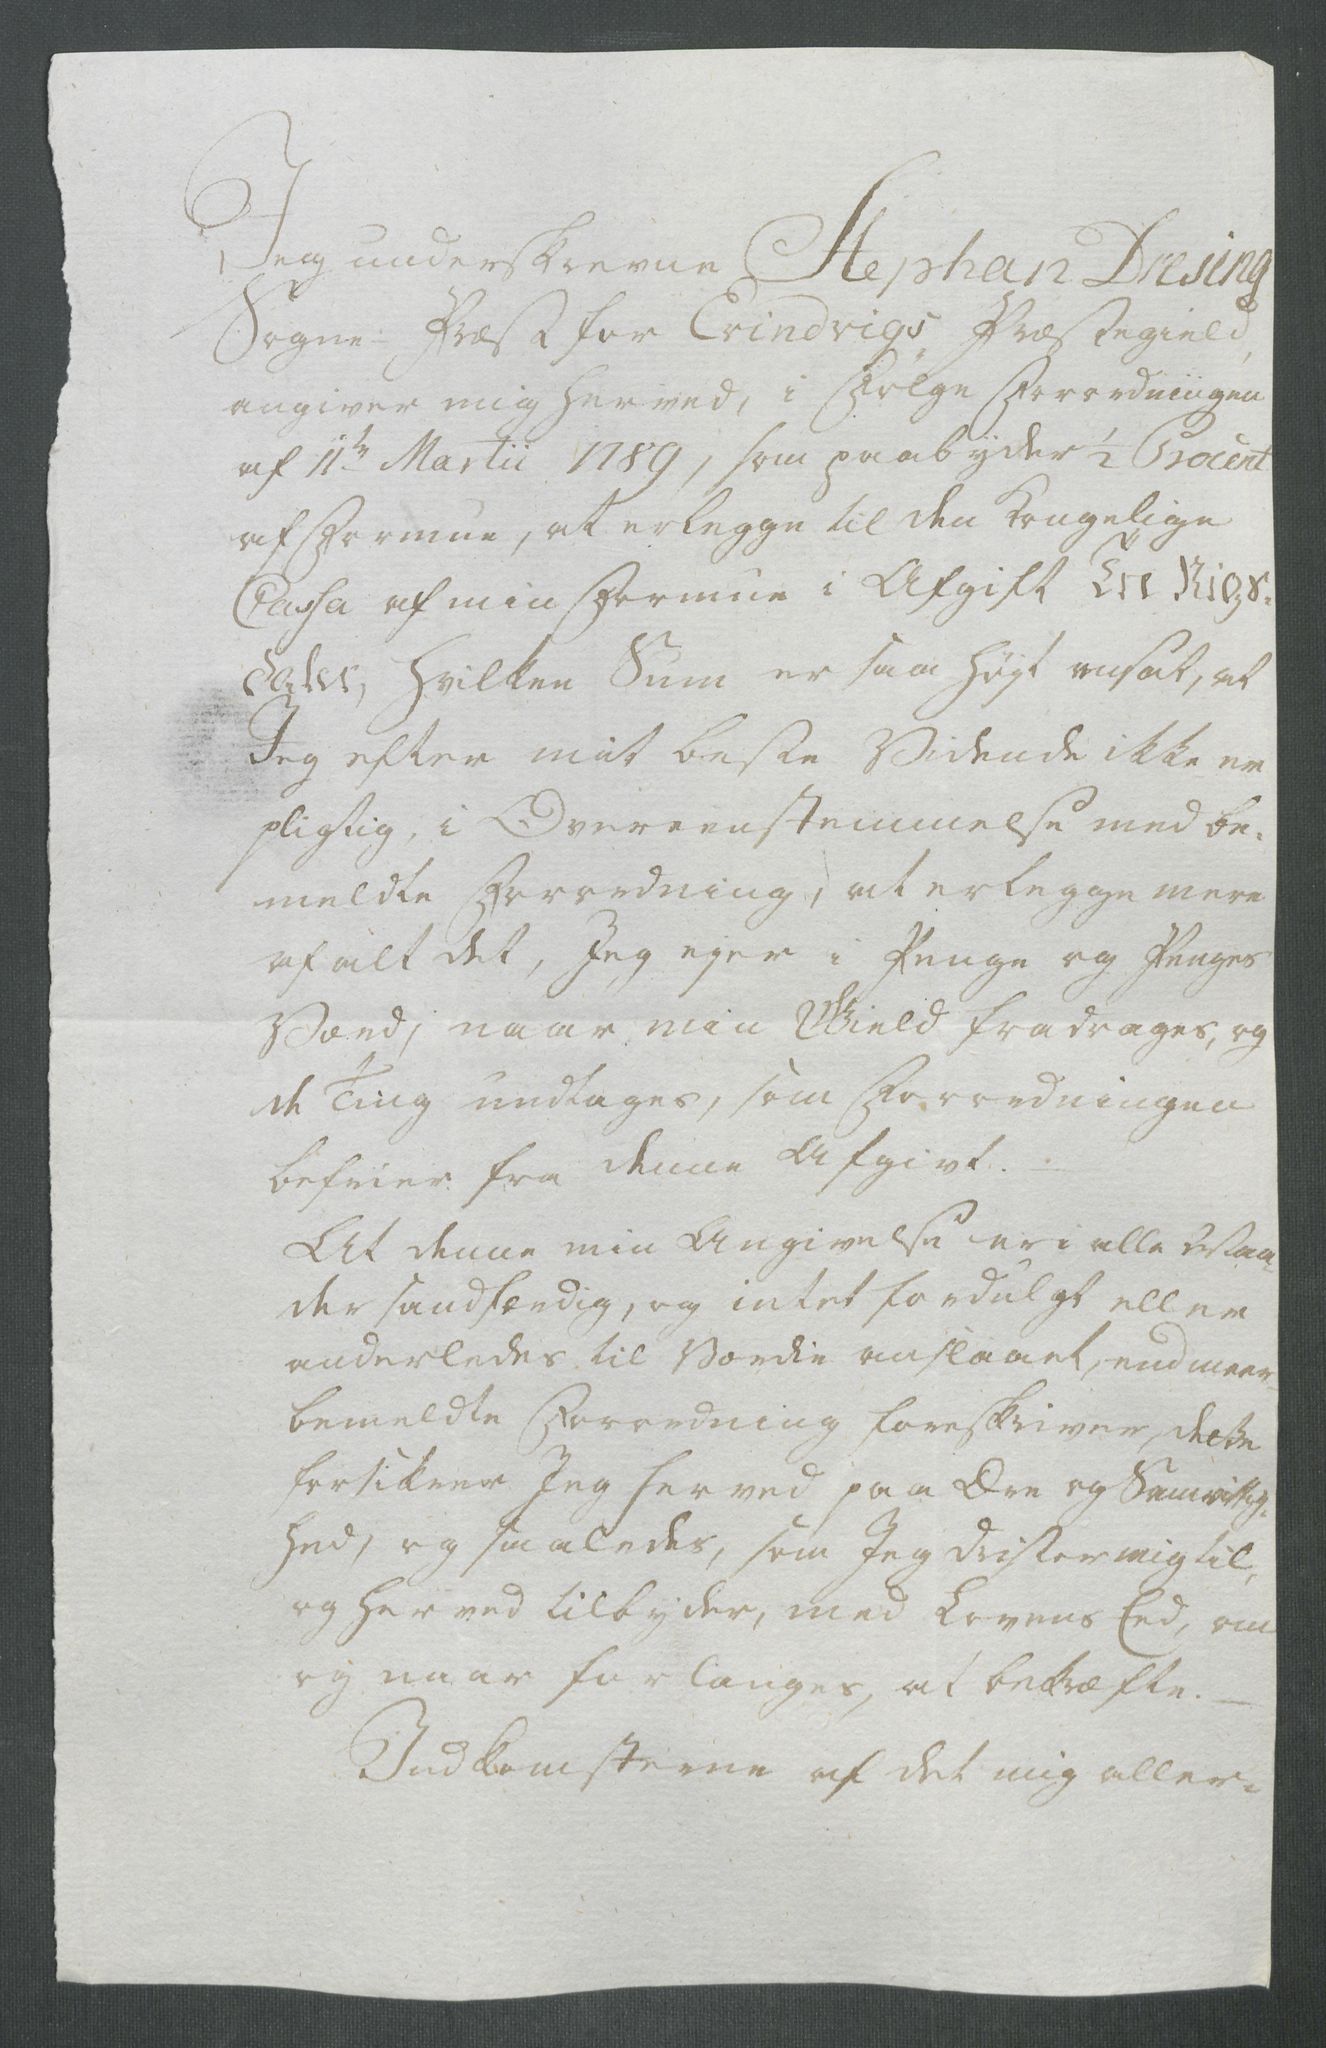 Jeg underskrevne Stephan Dresing
Sogne-Præst for Erindrigs Præstegield,
angiver mig herved, i Følge Forordningen
af 11te Martii 1789, som paabyder ½ Procent
af Formue, at erlegge til den Kongelige
Cassa af min Formue i Afgift Een Rigs-
daler, hvilken Sum er saa høyt ansat, at
Jeg efter mit beste Vidende ikke er
pligtig, i Overeenstemmelse med be-
meldte Forordning, at erlegge mere
af alt det, Jeg ejer i Penge og Penges
Værd, naar min Gield fradrages, og
de Ting undtages, som Forordningen
befrier fra denne Afgivt.
At denne min Angivelse er i alle Maa-
der sandfærdig, og intet fordulgt eller
anderledes til Værdie anslaaet, end meer-
bemeldte Forordning foreskriver, dette
forsikrer Jeg herved paa Ære og Samvittig-
hed, og saaledes, som Jeg drister mig til,
og herved tilbyder, med Lovens Eed, om
og naar forlanges, at bekræfte.
Indkomsterne af det mig aller-